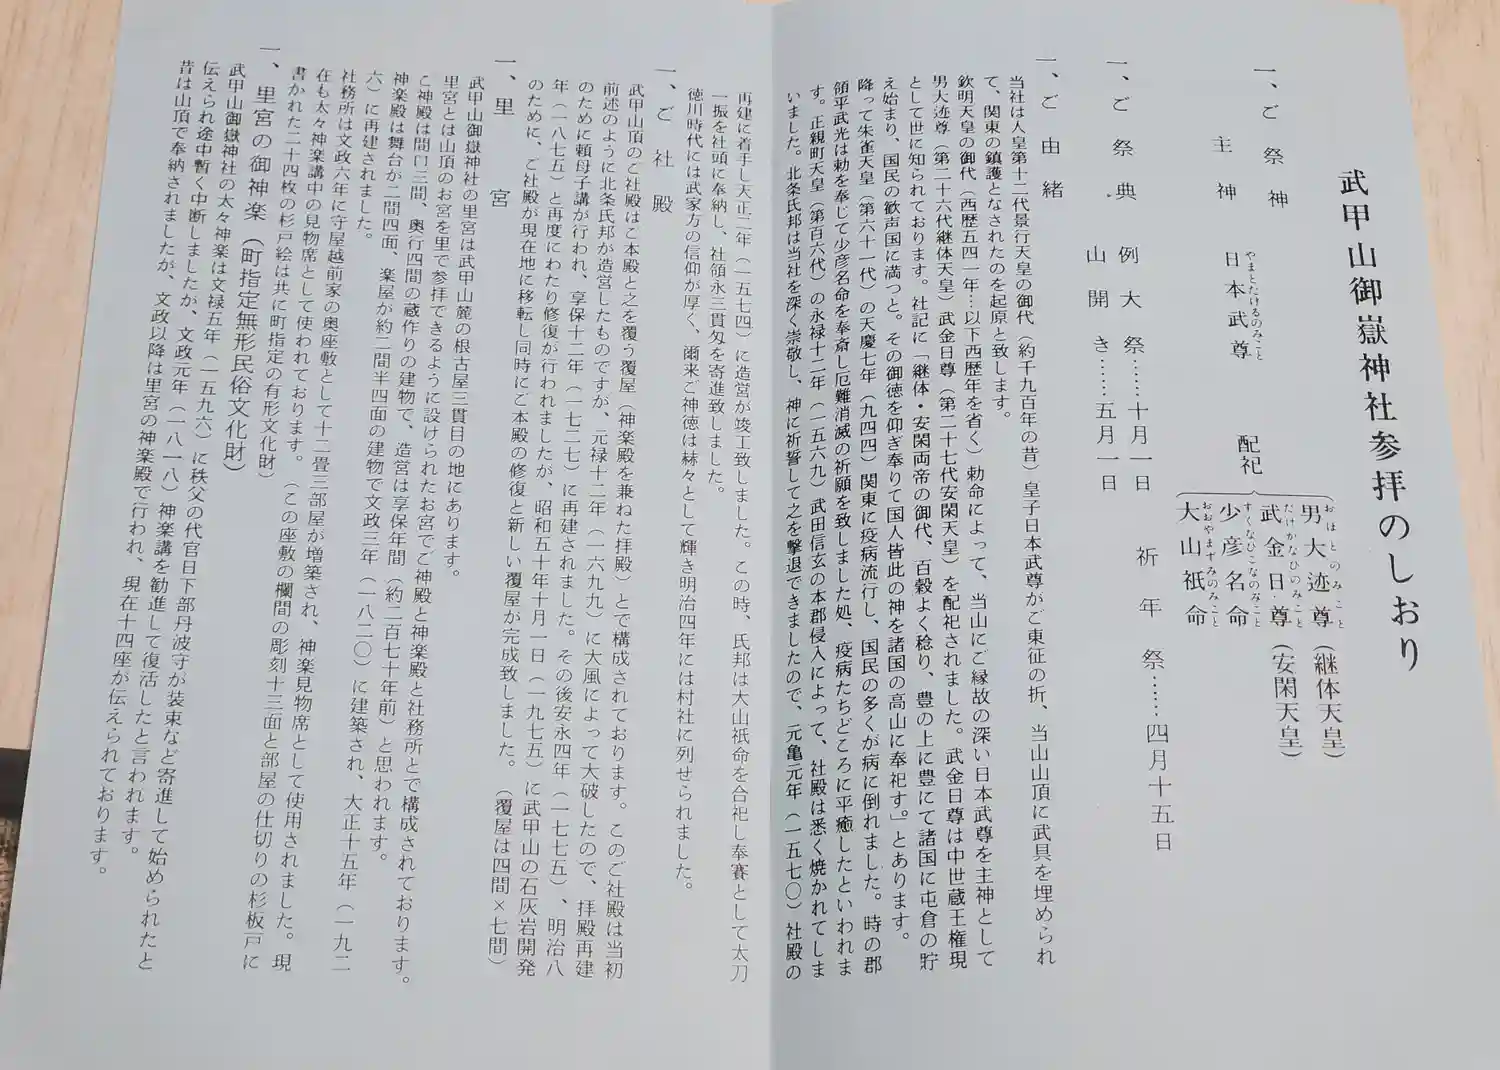 武甲山御嶽神社参拝のしおり
一、ご祭神
主神
日本武尊
やまとたけるのみこと
配祀
男大迹尊(継体天皇)
おほとのみこと
武金日尊(安閑天皇)
たけかなひのみこと
少彦名命
すくなひこなのみこと
大山祇命
おおやまずみのみこと
一、ご祭典 例大祭……十月一日 祈年祭……四月十五日
山開き……五月一日
一、ご由緒
当社は人皇第十二代景行天皇の御代(約千九百年の昔)皇子日本武尊がご東征の折、当山山頂に武具を埋められ
て、関東の鎮護となされたのを起原と致します。
欽明天皇の御代(西歴五四一年…以下西歴年を省く)勅命によって、当山にご縁故の深い日本武尊を主神として
男大迹尊(第二十六代継体天皇)武金日尊(第二十七代安閑天皇)を配祀されました。武金日尊は中世蔵王権現
として世に知られております。社記に「継体・安閑両帝の御代、百穀よく稔り、豊の上に豊にて諸国に屯倉の貯
え始まり、国民の歓声国に満つと。その御徳を仰ぎ奉りて国人皆此の神を諸国の高山に奉祀す」とあります。
降って朱雀天皇(第六十一代)の天慶七年(九四四)関東に疫病流行し、国民の多くが病に倒れました。時の郡
領平武光は勅を奉じて少彦名命を奉斎し厄難消滅の祈願を致しました処、疫病たちどころに平癒したといわれま
す。正親町天皇(第百六代)の永禄十二年(一五六九)武田信玄の本郡侵入によって、社殿は悉く焼かれてしま
いました。北条氏邦は当社を深く崇敬し、神に祈誓して之を撃退できましたので、元亀元年(一五七〇)社殿の
再建に着手し天正二年(一五七四)に造営が竣工致しました。この時、氏邦は大山祇命を合祀し奉賽として太刀
一振を社頭に奉納し、社領永三貫匁を寄進致しました。
徳川時代には武家方の信仰が厚く、爾来ご神徳は赫々として輝き明治四年には村社に列せられました。
一、ご社殿
武甲山頂のご社殿はご本殿と之を覆う覆屋(神楽殿を兼ねた拝殿)とで構成されております。このご社殿は当初
前述のように北条氏邦が造営したものですが、元禄十二年(一六九九)に大風によって大破したので、拝殿再建
のために頼母子講が行われ、享保十二年(一七二七)に再建されました。その後安永四年(一七七五)、明治八
年(一八七五)と再度にわたり修復が行われましたが、昭和五十年十月一日(一九七五)に武甲山の石灰岩開発
のために、ご社殿が現在地に移転し同時にご本殿の修復と新しい覆屋が完成致しました。(覆屋は四間×七間)
一、里宮
武甲山御嶽神社の里宮は武甲山麓の根古屋三貫目の地にあります。
里宮とは山頂のお宮を里で参拝できるように設けられたお宮でご神殿と神楽殿と社務所とで構成されております。
ご神殿は間口三間、奥行四間の蔵作りの建物で、造営は享保年間(約二百七十年前)と思われます。
神楽殿は舞台が二間四面、楽屋が約二間半四面の建物で文政三年(一八二〇)に建築され、大正十五年(一九二
六)に再建されました。
社務所は文政六年に守屋越前家の奥座敷として十二畳三部屋が増築され、神楽見物席として使用されました。現
在も太々神楽講中の見物席として使われております。(この座敷の欄間の彫刻十三面と部屋の仕切りの杉板戸に
書かれた二十四枚の杉戸絵は共に町指定の有形文化財)
一、里宮の御神楽(町指定無形民俗文化財)
武甲山御嶽神社の太々神楽は文禄五年(一五九六)に秩父の代官日下部丹波守が装束など寄進して始められたと
伝えられ途中暫く中断しましたが、文政元年(一八一八)神楽講を勧進して復活したと言われます。
昔は山頂で奉納されましたが、文政以降は里宮の神楽殿で行われ、現在十四座が伝えられております。